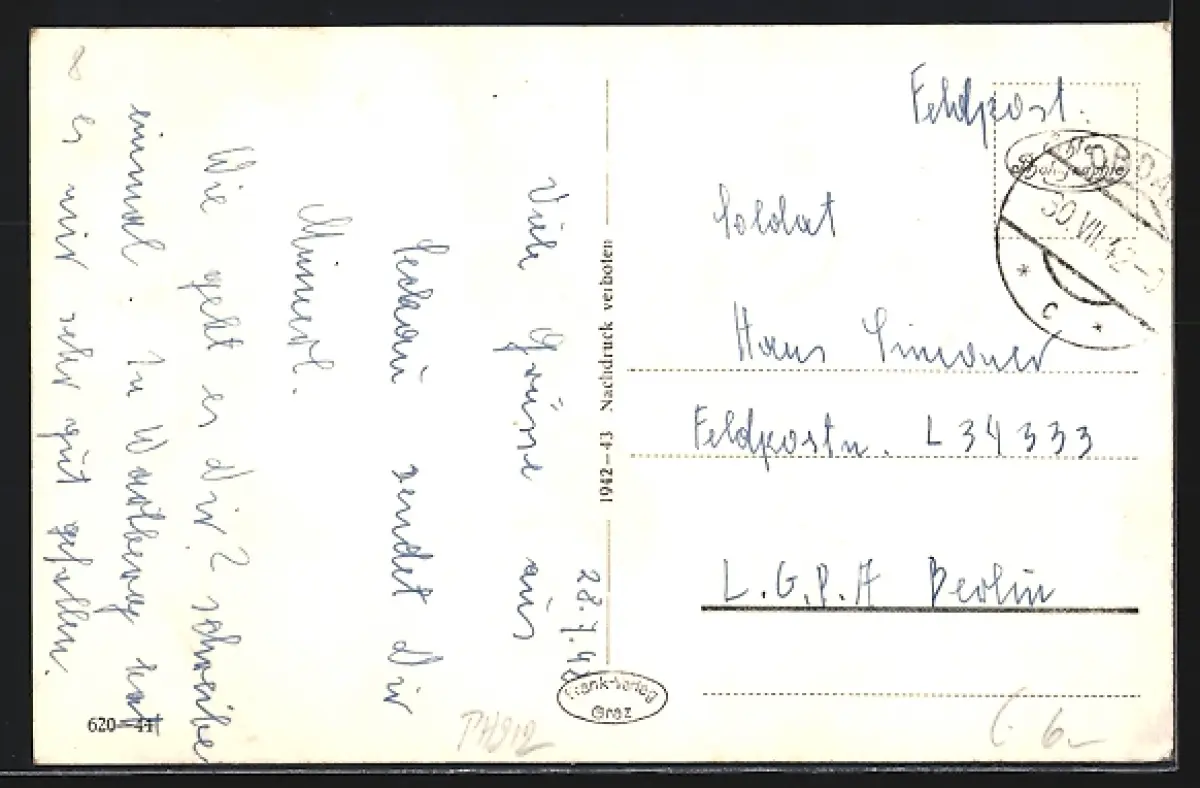 28.7.42
Viele Grüsse aus
Seckau sendet dir
Minerl.
Wie geht es dir? schreibe
einmal. In Wartberg hat
es mir sehr gut gefallen.
8
620—41
PH912
1942—43 Nachdruck verboten
Frank-Verlag
Graz
Feldpost.
Echte
Photographie
OBDA
30.VII.42
* C *
Soldat
Hans Simoner
Feldpostn. L 34 333
L.G.P.A Berlin
6.-